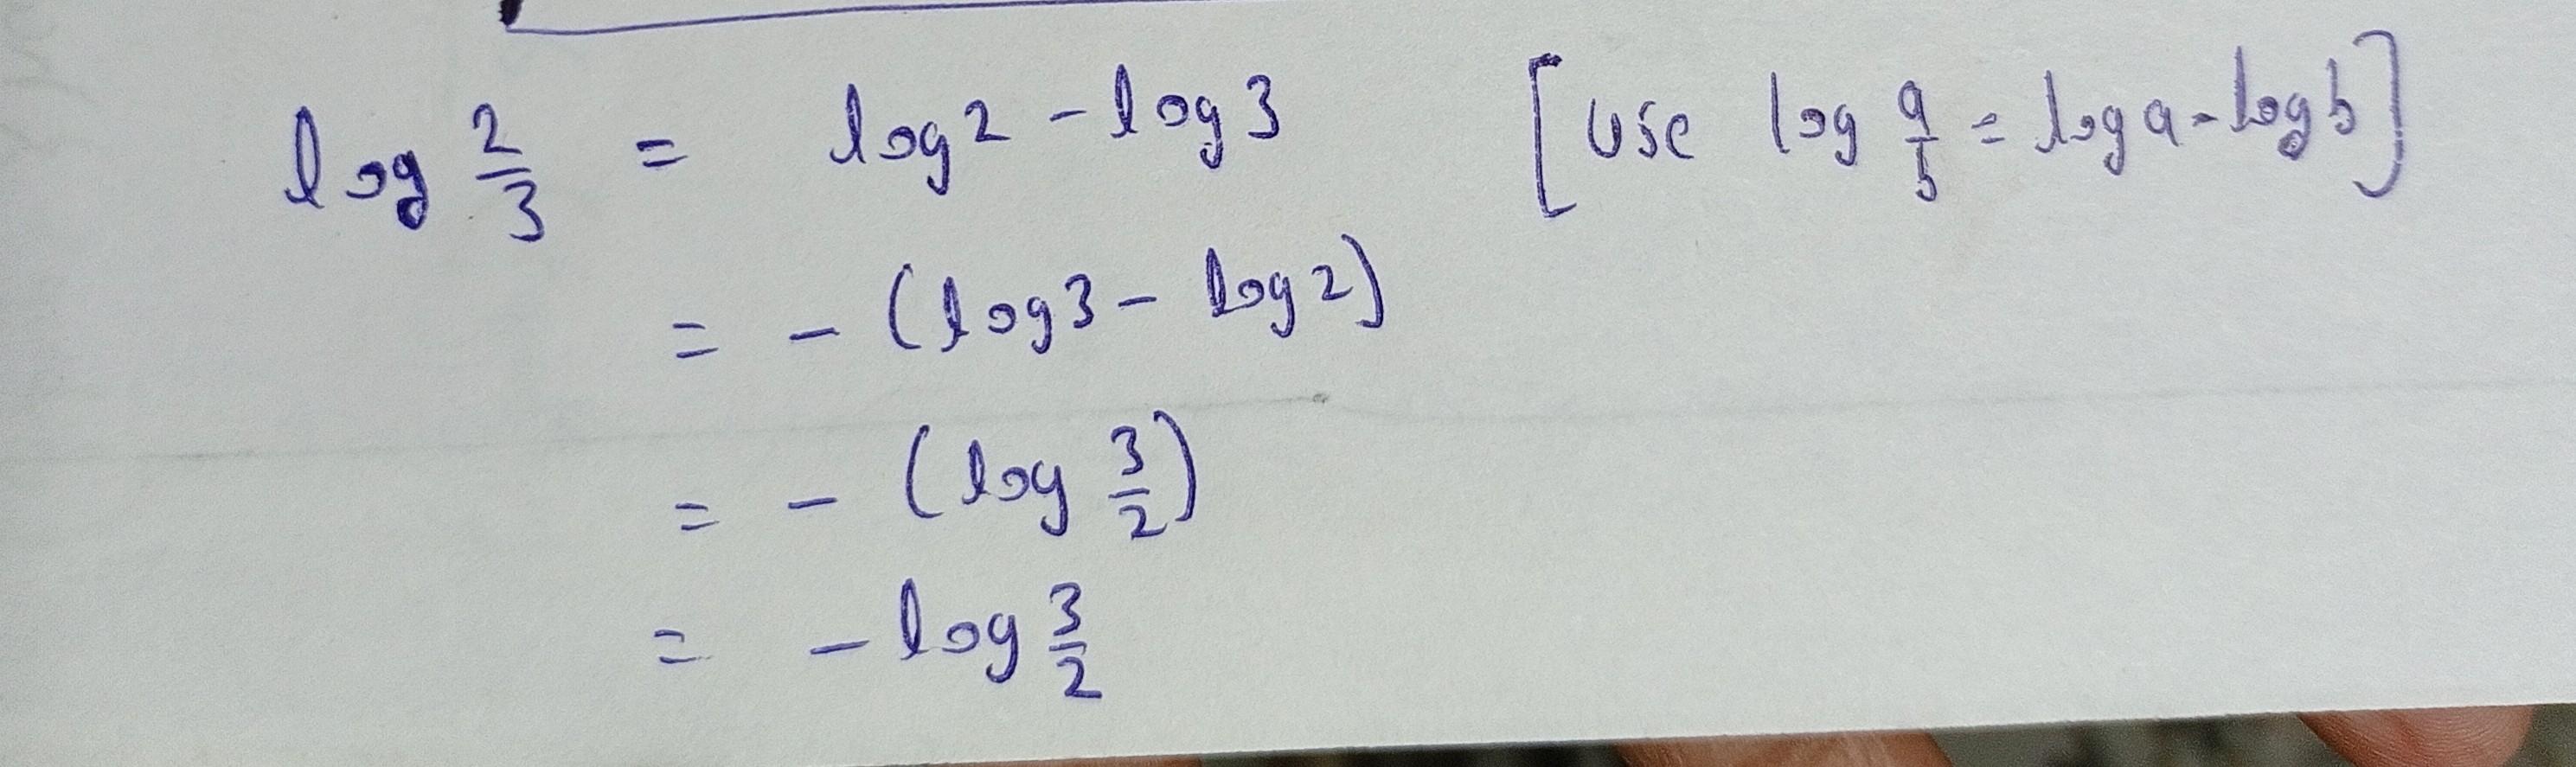 log 2/3 = log2 - log3 [Use log a/b = log a - log b]
= - (log3 - log2)
= - (log 3/2)
= - log 3/2